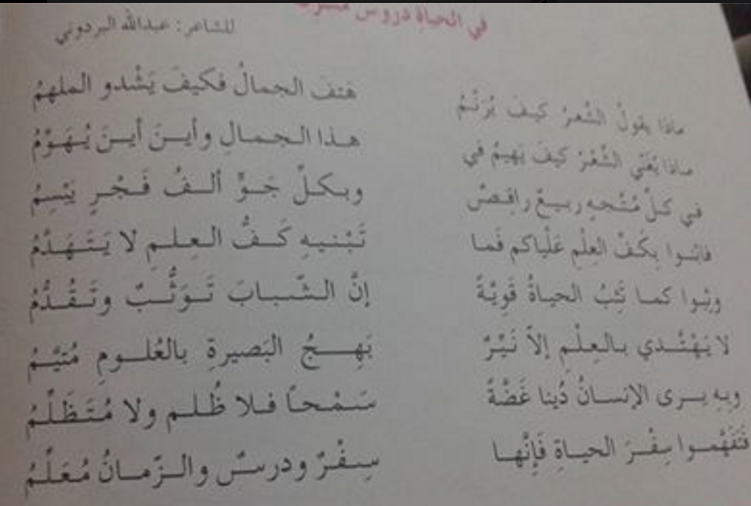 في الحياة دروس
للشاعر: عبدالله البردوني
ماذا يقولُ الشّعرُ كيفَ يُرَنِّمُ هتفَ الجمالُ فكيفَ يَشْدو الملهمُ
ماذا يُغَنّي الشّعْرُ كيفَ يَهيمُ في هذا الجمالِ وأينَ أينَ يُهَوِّمُ
في كلِّ مُتّجهٍ ربيعٌ راقِصٌ وبكلِّ جَوٍّ ألفُ فَجْرٍ يَبْسِمُ
فابْنوا بِكَفِّ العِلْمِ عَلْياكم فَما تَبْنيهِ كَفُّ العِلمِ لا يَتَهَدَّمُ
وثِبُوا كما تَثِبُ الحياةُ قَوِيّةً إنَّ الشّبابَ تَوَثُّبٌ وتَقَدُّمُ
لا يَهْتَدي بالعِلْمِ إلاّ نَيِّرٌ بَهِجُ البَصيرةِ بالعُلومِ مُتيَّمُ
وبِهِ يرى الإنسانُ دُينا غَضّةً سَمْحاً فلا ظُلم ولا مُتَظَلِّمُ
فَتَفَهَّموا سِفْرَ الحياةِ فَإنَّها سِفْرٌ ودرسٌ والزّمانُ مُعَلِّمُ